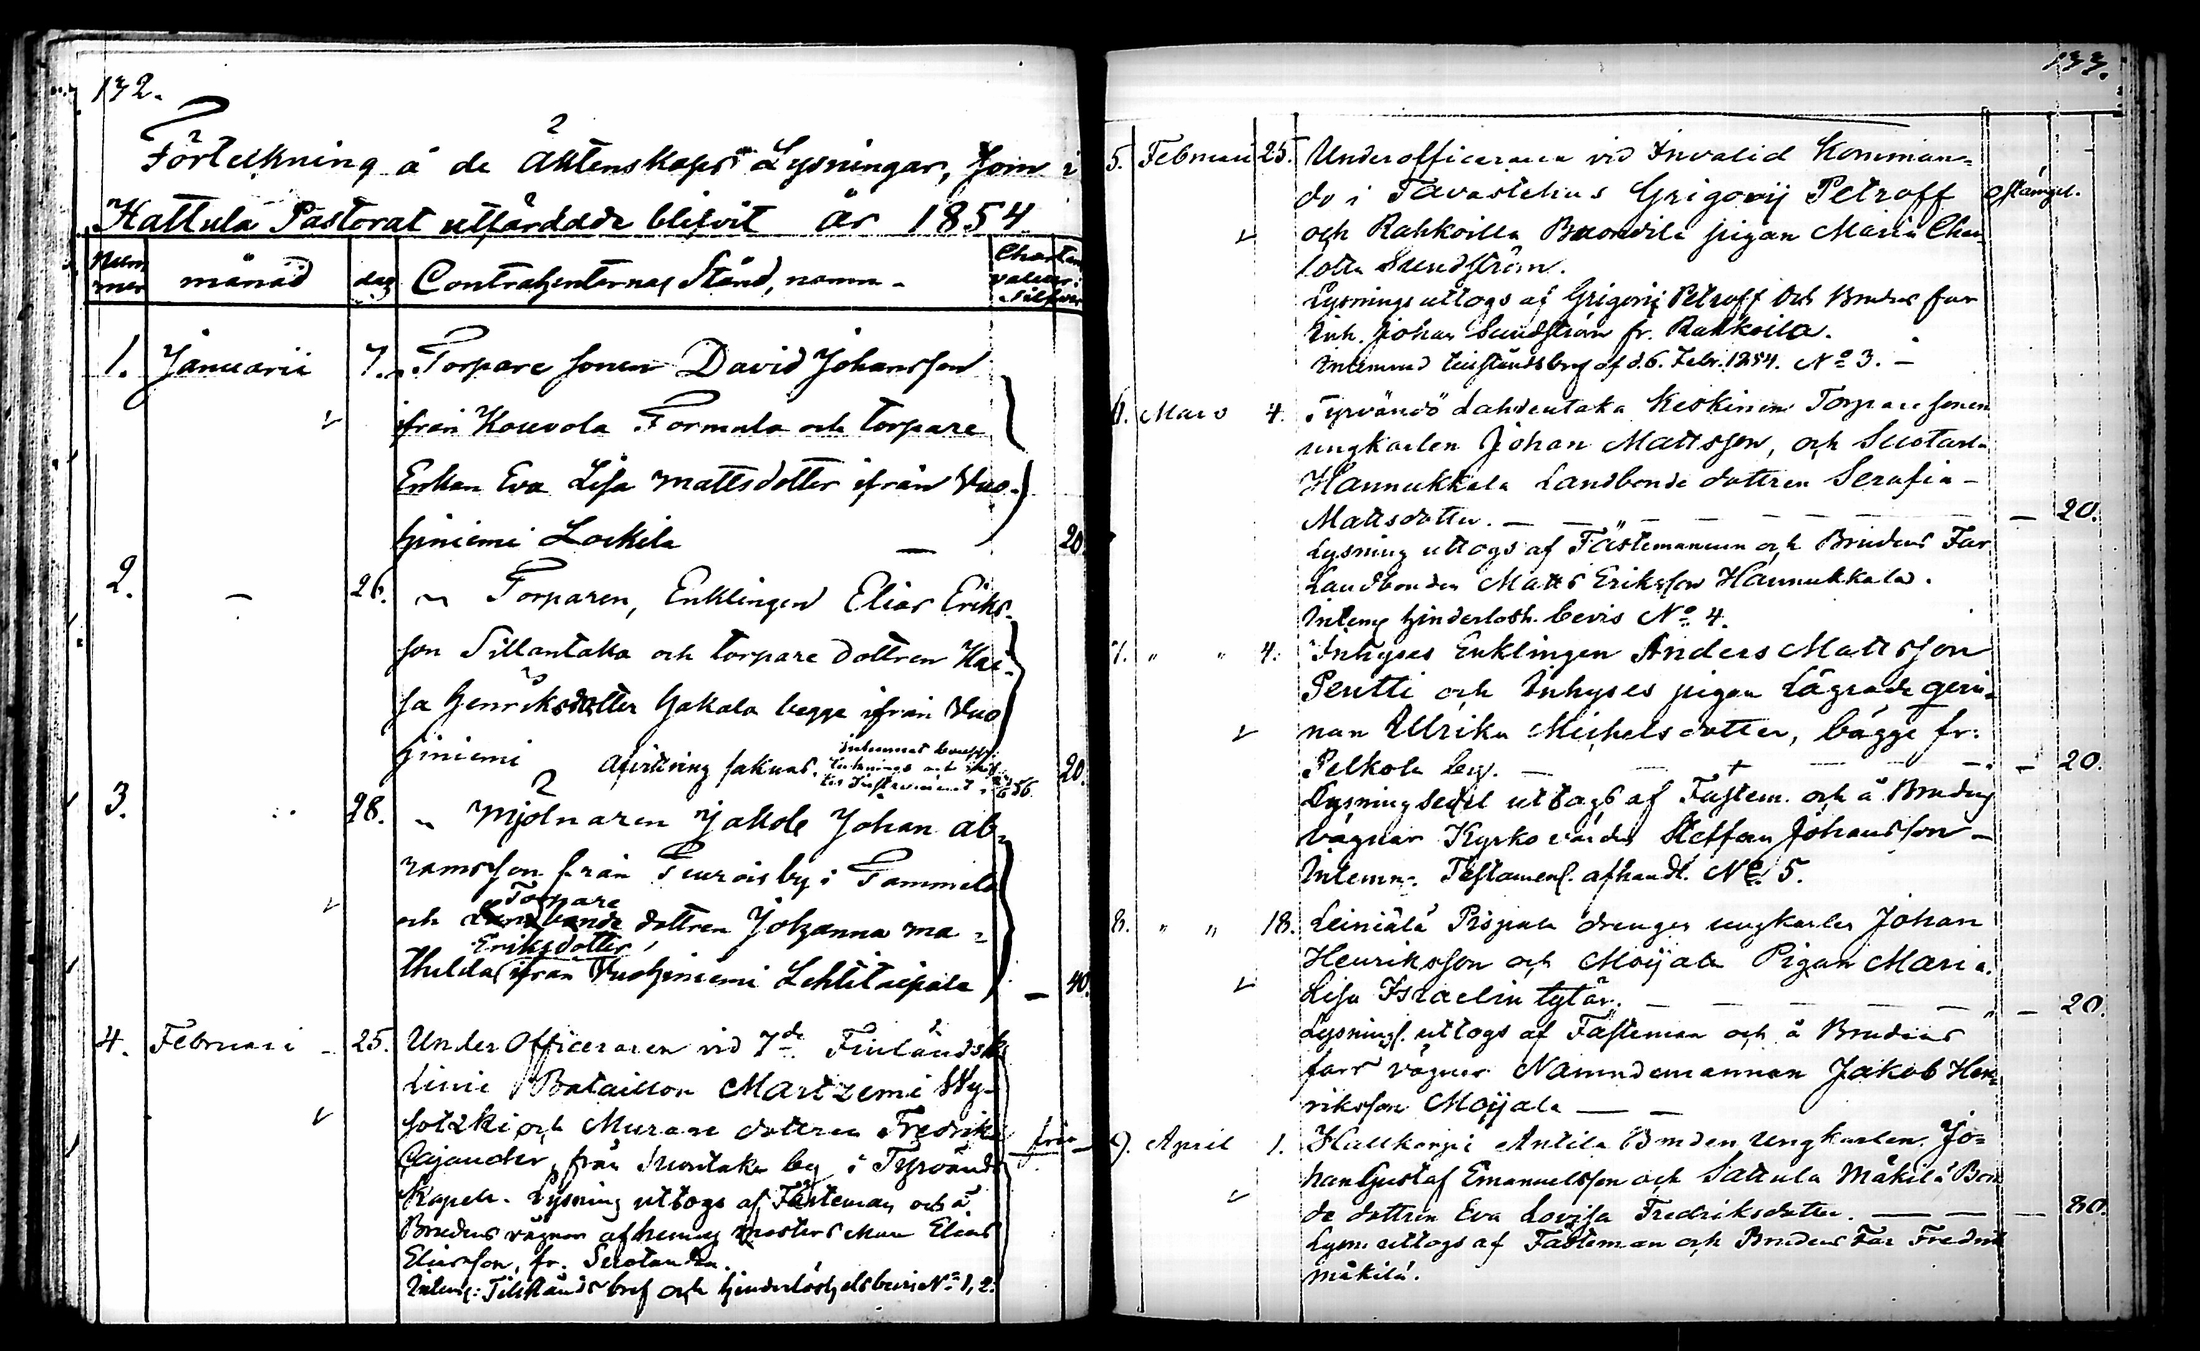 132.
Förteckning å de Äktenskaps Lysningar, som i
Hattula Pastorat utfärdade blifvit år 1854.
Num̄mer månad dag Contrahenternas Stånd, namn - Charta valeur i Silfver
1. Januarii 7. Torpare sonen David Johansson
ifrån Kouvola Formula och torpare
Enkan Eva Lisa Mattsdotter ifrån Vuo-
hiniemi Lockila — 20
2. — 26. Torparen, Enklingen Elias Eriks-
son Sillantaka och torpare dottren Kai-
sa Henriksdotter Hakala begge ifrån Vuo
hiniemi Afvittring saknas. 20.
3. 28. Mjölnaren Jakob Johan Ab-
ramsson från by i Tammela
Torpare
och dottren Johanna Ma-
Eriksdotter
thilda ifrån Vuohiniemi Lehtitaipale — 40.
4. Februari - 25. Under Officeraren vid 7de Finländsk
Linie Bataillon Martzemi Wy-
sotzki och Murare dottren Fredrika
Cajander, från by i Tyrvändö
Kapell. Lysning uttogs af Fästeman och å
Brudens vägnar af hennes mosters man Elias
Eliasson, fr.
Intemn: Tillstånds bref och hinderlöshetsbevis No 1, 2.
133.
5. Februari 25. Underofficeraren vid Invalid Komman-
do i Tavastehus Grigorij Petroff Stämpel.
och Rahkoila pigan Maria Char-
lotta Sundström.
Lysnings uttogs af Grigorij Petroff och Brudens far
Inh. Johan Sundström fr. Rahkoila.
Intemnad tillståndsbref af d. 6. Febr. 1854. No 3. —
6. Mars 4. Tyrvändö Lahdentaka Keskinen Torpare sonen
ungkarlen Johan Mattsson, och
Hannukkala Landbonde dottren Serafia -
Mattsdotter. — — — 20.
Lysning uttogs af Fästemannen och Brudens Far
Landbonden Matts Eriksson Hannukkala.
Intemn hinderlösh. bevis No 4.
7. " " 4. Inhyses Enklingen Anders Mattsson
Pentti och Inhyses pigan Lägrade qvin-
nan Ulrika Michelsdotter, bägge fr:
Pelkola by. — — 20.
Lysning sedel uttogs af Fästem. och å Brudens
vägnar Kyrko värden Steffan Johansson —
Intemn: Testament. afhandl. No 5.
8. " " 18. Leiniälä Pispala drengen ungkarlen Johan
Henriksson och Moijala Pigan Maria
Lisa Israelin tytär. — — 20.
Lysnings. uttogs af Fästeman och å Brudens
fars vägnar Nämndemannen Jakob Hen-
riksson Moijala — —
9. April 1. Antila Bonden Ungkarlen Jo-
han Gustaf Emanuelsson och Sattula Mäkilä Bon
de dottren Eva Lovisa Fredriksdotter. — — — 80.
Lysn: uttogs af Fästeman och Brudens Far Fredrik
Mäkilä.